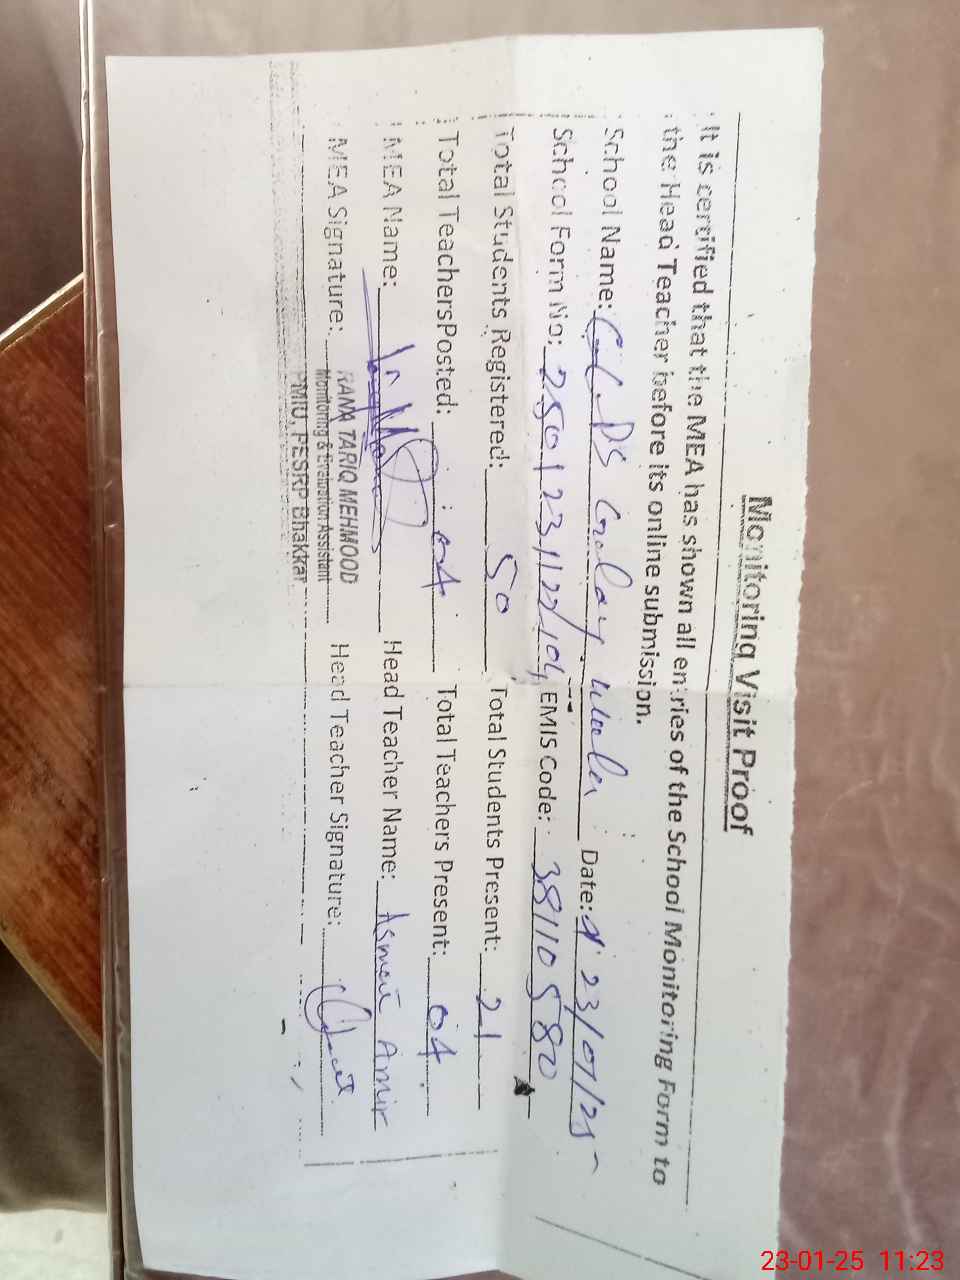 Monitoring Visit Proof
It is certified that the MEA has shown all entries of the School Monitoring Form to
the Head Teacher before its online submission.
School Name: Date: 23/01/25
School Form No: 2501231122104 EMIS Code: 38110580
Total Students Registered: 50 Total Students Present: 21
Total Teachers Posted: 04 Total Teachers Present: 04
MEA Name: Head Teacher Name: Asmat Amir
MEA Signature: Head Teacher Signature:
RANA TARIQ MEHMOOD
Monitoring & Evaluation Assistant
PMIU, PESRP Bhakkar
23-01-25 11:23